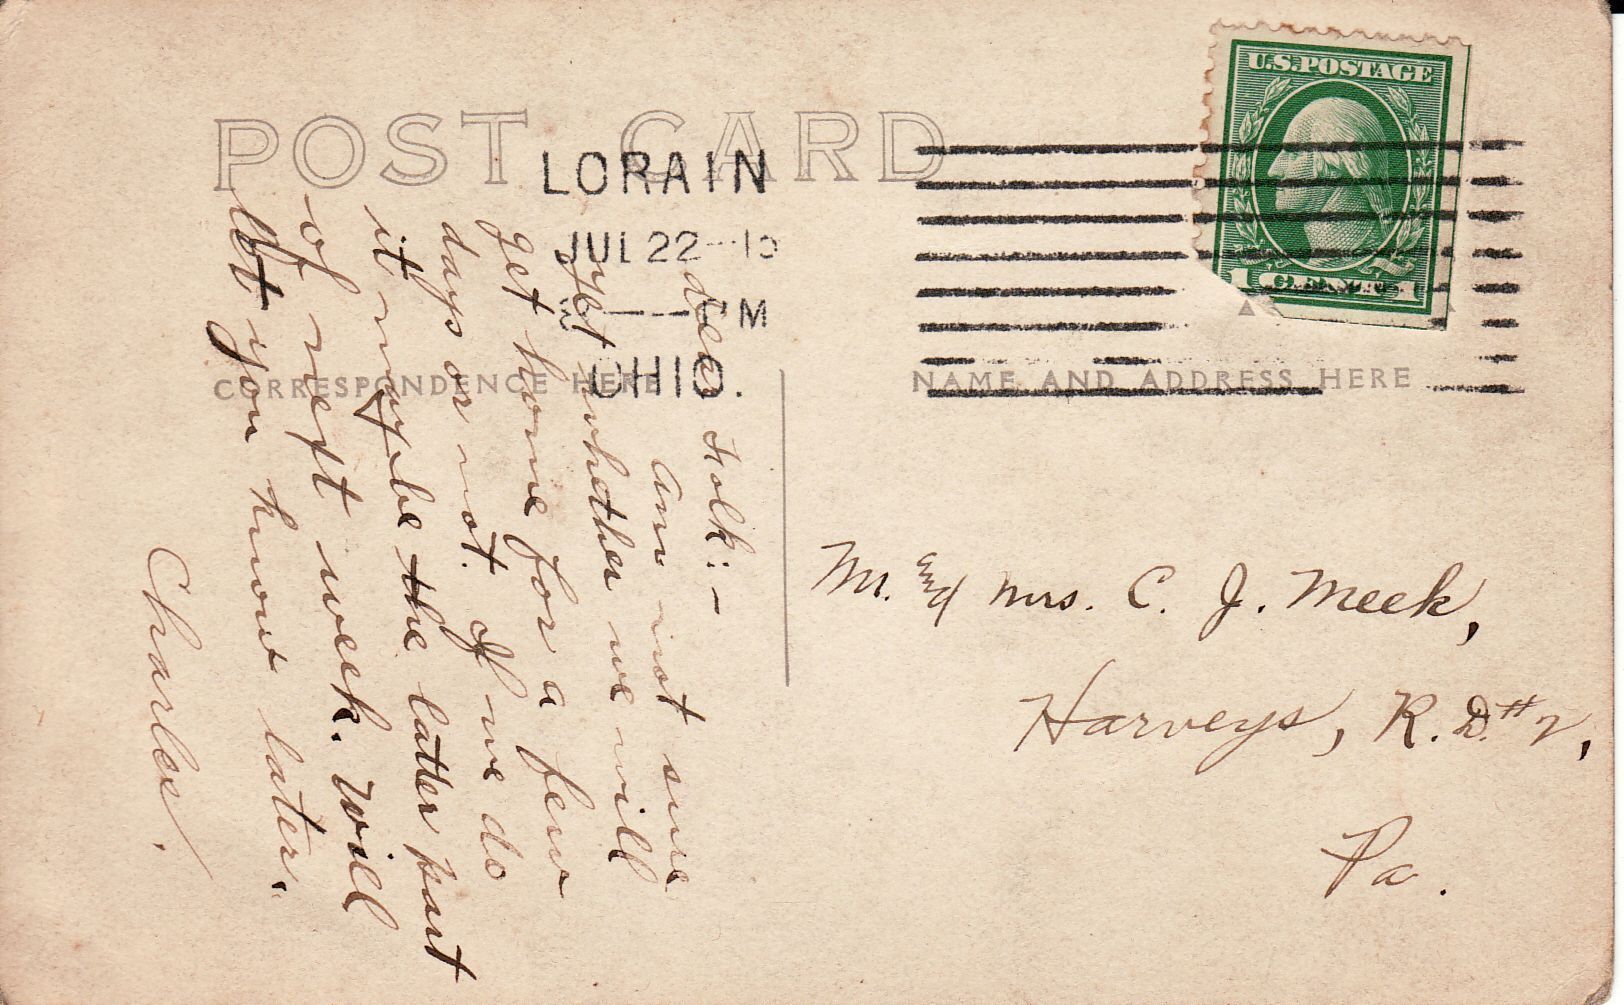 POST CARD
LORAIN
JUL 22
PM
OHIO.
U.S. POSTAGE
CORRESPONDENCE HERE
NAME AND ADDRESS HERE
dear Folk:-
Am not sure
yet whether we will
get home for a few
days or not. If we do
it may be the latter part
of next week. Will
let you know later.
Charles.
Mr. and Mrs. C. J. Meek,
Harveys, R. D. #2,
Pa.